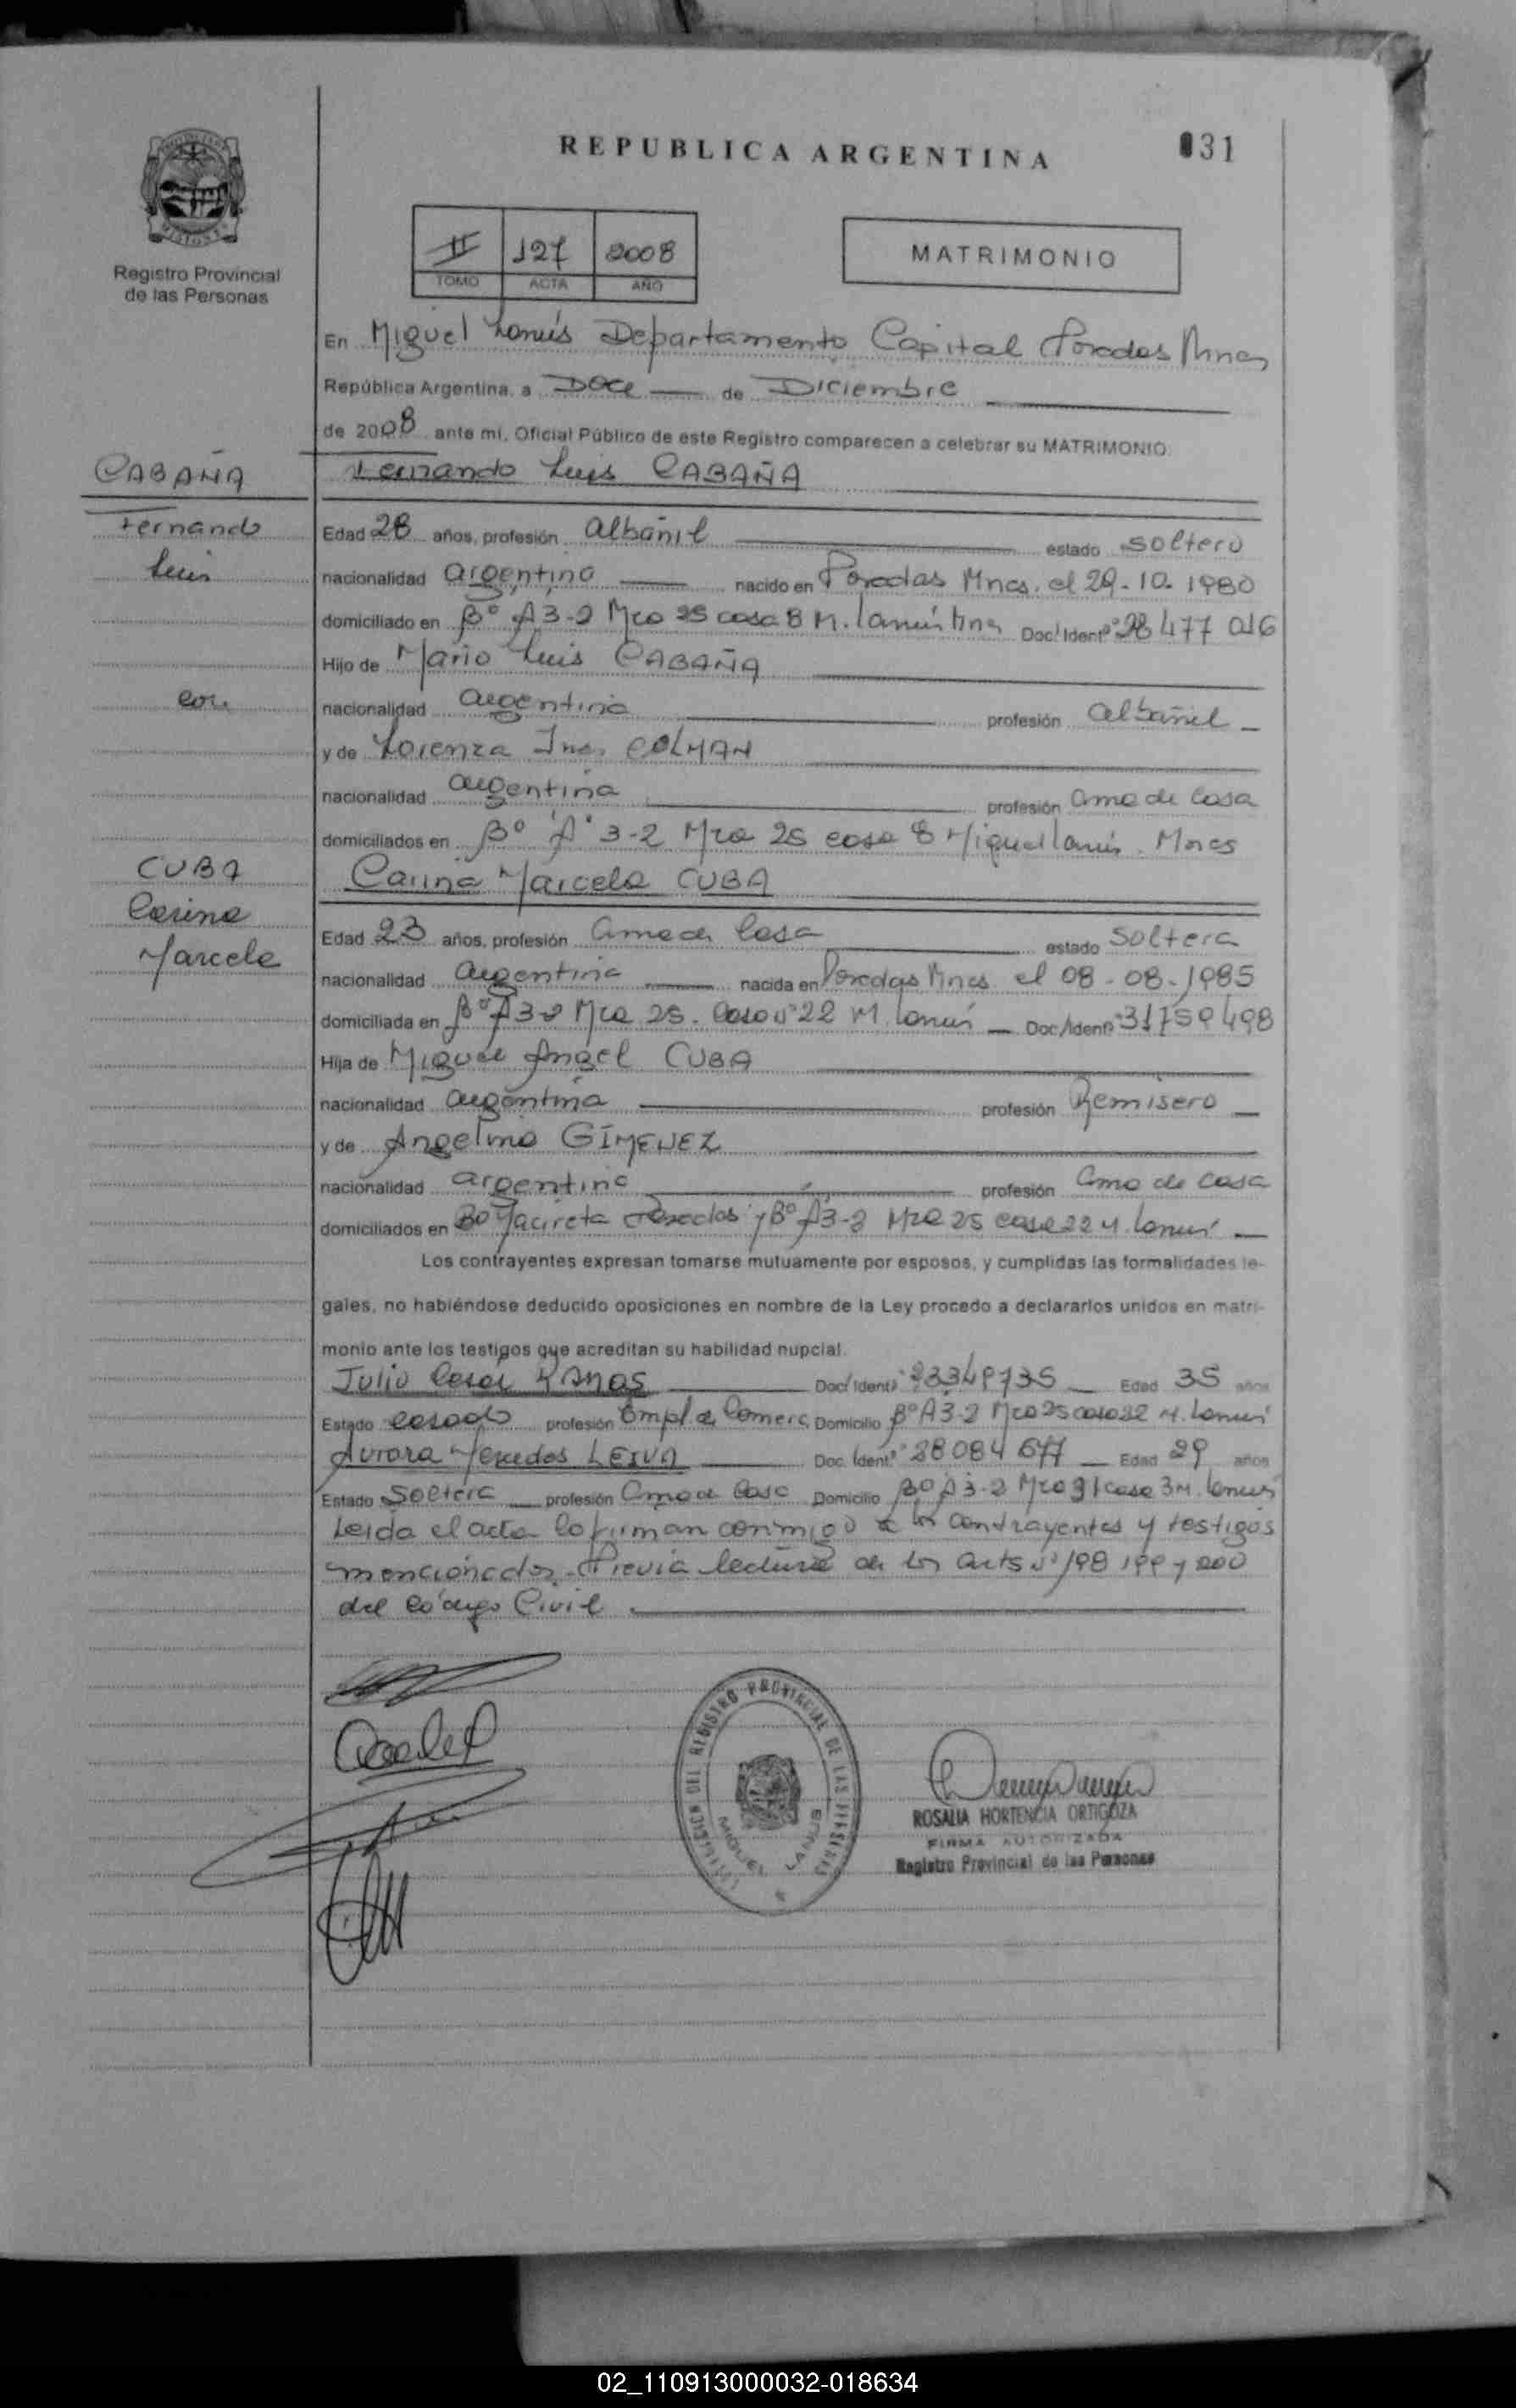 REPUBLICA ARGENTINA
031
Registro Provincial
de las Personas
II 127 2008
TOMO ACTA AÑO
MATRIMONIO
En Miguel Lanús Departamento Capital Posadas Mnes
República Argentina, a Doce de Diciembre
de 2008 ante mi, Oficial Público de este Registro comparecen a celebrar su MATRIMONIO:
CABAÑA
Fernando Luis CABAÑA
Fernando
Edad 28 años, profesión albañil estado soltero
Luis
nacionalidad argentino nacido en Posadas Mnes. el 29-10-1980
domiciliado en B° A3-2 Mza 25 casa 8 M. Lanús Mnes Doc. Ident. N° 28 477 016
Hijo de Mario Luis CABAÑA
con
nacionalidad argentina profesión albañil
y de Lorenza Ines COLMAN
nacionalidad argentina profesión ama de casa
domiciliados en B° A 3-2 Mza 25 casa 8 Miguel Lanús. Mnes
CUBA
Carina Marcela CUBA
Carina
Edad 23 años, profesión ama de casa estado soltera
Marcela
nacionalidad argentina nacida en Posadas Mnes el 08-08-1985
domiciliada en B° A3-2 Mza 25. Casa N° 22 M. Lanús Doc. Ident. N° 31759498
Hija de Miguel Angel CUBA
nacionalidad argentina profesión Remisero
y de Angelina GIMENEZ
nacionalidad argentina profesión ama de casa
domiciliados en B° Yacireta Posadas y B° A3-2 Mza 25 casa 22 M. Lanús
Los contrayentes expresan tomarse mutuamente por esposos, y cumplidas las formalidades le-
gales, no habiéndose deducido oposiciones en nombre de la Ley procedo a declararlos unidos en matri-
monio ante los testigos que acreditan su habilidad nupcial.
Julio Cesar Doc. Ident. N° 23349735 Edad 35 años
Estado casado profesión Empl. de Comerc. Domicilio B° A3-2 Mza 25 casa 22 M. Lanús
Aurora Mercedes LEIVA Doc. Ident. N° 28084677 Edad 29 años
Estado Soltera profesión Ama de Casa Domicilio B° A3-2 Mza 31 casa 3 M. Lanús
Leída el acta la firman conmigo los contrayentes y testigos
mencionados. Previa lectura de los arts N° 198 199 y 200
del Código Civil
DEL REGISTRO PROVINCIAL DE LAS PERSONAS
MIGUEL LANUS
ROSALIA HORTENCIA ORTIGOZA
FIRMA AUTORIZADA
Registro Provincial de las Personas
02_110913000032-018634